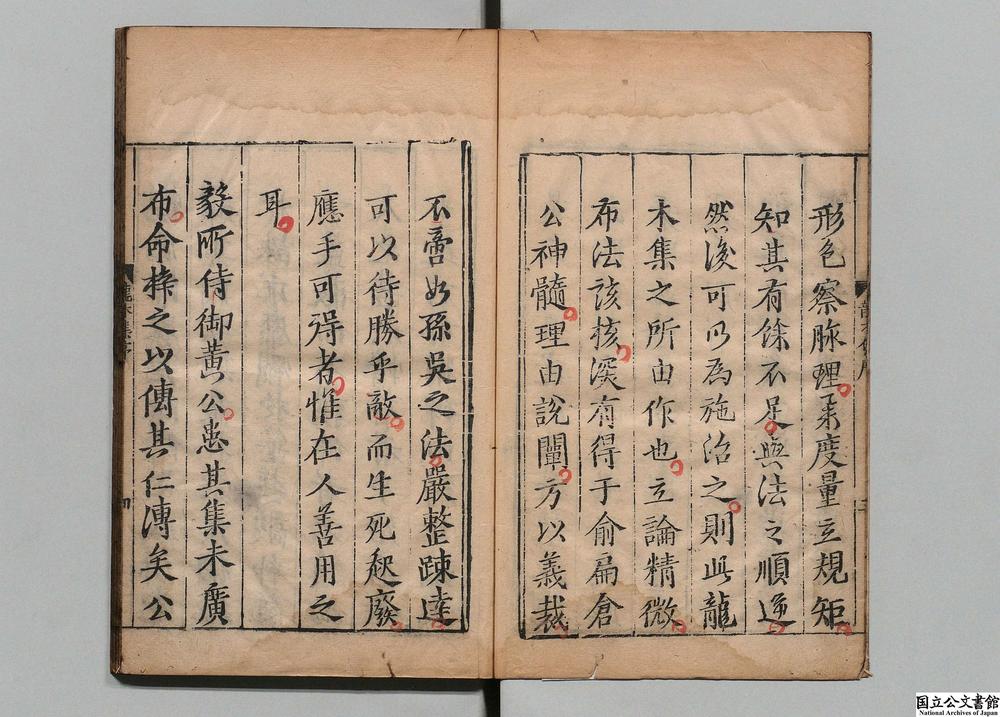 形色察脉理柔度量立規矩
知其有餘不足與法之順逆
然後可以為施治之則此龍
木集之所由作也立論精微
布法該核深有得于俞扁倉
公神髓理由說闡方以義裁
不啻如孫吳之法嚴整踈達
可以待勝乎敵而生死起廢
應手可得者惟在人善用之
耳
毅所侍御黃公患其集未廣
布命梓之以傳其仁漙矣公
國立公文書館
National Archives of Japan